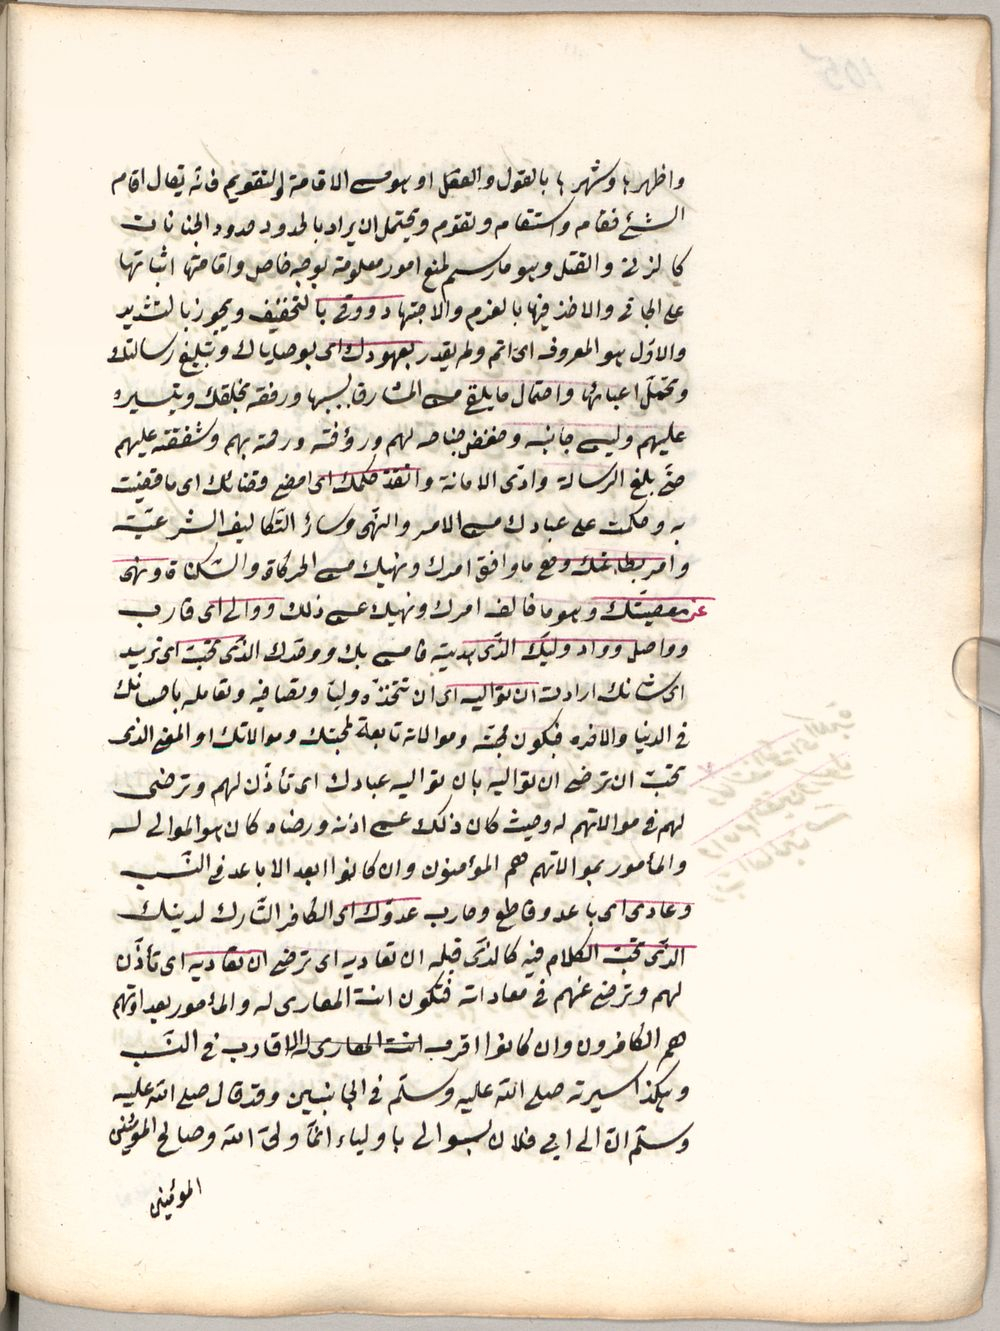 واظهرها وشهرها بالقول والفعل او هو من الاقامة والتقويم فانه يقال اقام
الشئ فقام واستقام وتقوم ويحتمل ان يراد بالحدود حدود الجنايات
كالزنى والقتل وهو ما رسم لمنع امور معلومة بوجه خاص واقامتها اثباتها
على الجانى والاخذ فيها بالعزم والاجتهاد ووفى بالتخفيف ويجوز بالتشديد
والاول هو المعروف اى اتم ولم يغدر بعهودك اى بوصاياك وتبليغ رسالتك
وتحمل اعبائها واحتمال ما يلقى من المشاق بسببها ورفقه بخلقك وتيسيره
عليهم ولين جانبه وخفض جناحه لهم ورؤفته ورحمته بهم وشفقته عليهم
حتى بلغ الرسالة وادى الامانة وانفذ حكمك اى امضى قضائك اى ما قضيت
به وحكمت على عبادك من الامر والنهى وسائر التكاليف الشرعية
وامر بطاعتك وهى ما وافق امرك ونهيك من الحركاة والسكناة ونهى
عن معصيتك وهو ما خالف امرك ونهيك عن ذلك ووالى اى قارب
وواصل وواد وليك الذى هديته فامن بك ووحدك الذى تحب اى تريد
اى شانك ارادت ان تواليه اى ان تتخذه وليا وتصافيه وتعامله باحسانك
فى الدنيا والآخرة فيكون محبته وموالاته تابعة لمحبتك وموالاتك او المعنى الذى
تحب ان ترضى ان تواليه بان تواليه عبادك اى تأذن لهم وترضى
لهم فى موالاتهم له وحيث كان ذلك عن اذنه ورضاه كان هو الموالى له
والمأمور بموالاتهم هم المؤمنون وان كانوا ابعد الاباعد فى النسب
وعادى اى باعد وقاطع وحارب عدوك اى الكافر التارك لدينك
الذى تحب الكلام فيه كالذى قبله ان تعاديه اى ترضى ان تعاديه اى تأذن
لهم وترضى عنهم فى معاداته فتكون انت المعادى له والمأمور بعداوتهم
هم الكافرون وان كانوا اقرب انت المعادى له الاقارب فى النسب
وهكذا سيرته صلى الله عليه وسلم فى الجانبين وقد قال صلى الله عليه
وسلم ان ال ابى فلان ليسوا لى باولياء انما ولى الله وصالح المؤمنين
المؤمنين